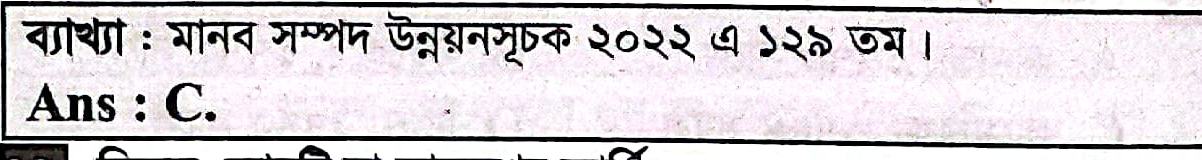 ব্যাখ্যা : মানব সম্পদ উন্নয়নসূচক ২০২২ এ ১২৯ তম।
Ans : C.